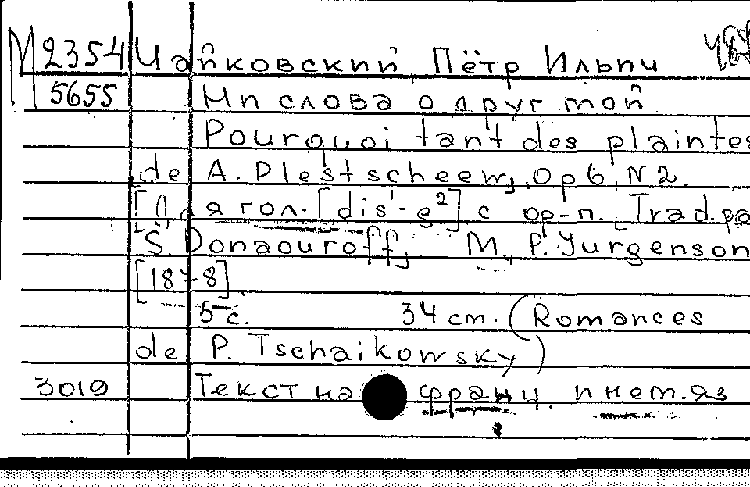 М 2354 Чайковский, Пётр Ильич
5655 Ни слова о друг мой
Pourquoi tant des plaintes
de A. Plestscheew, Op 6, N 2.
[Для гол. [dis¹-g²] с ф-п. Trad. pa
S. Donaouroff, M, P. Jurgenson
[187-8]
5 с. 34 см. (Romances
de P. Tschaikowsky)
3019 Текст на франц. и нем. яз